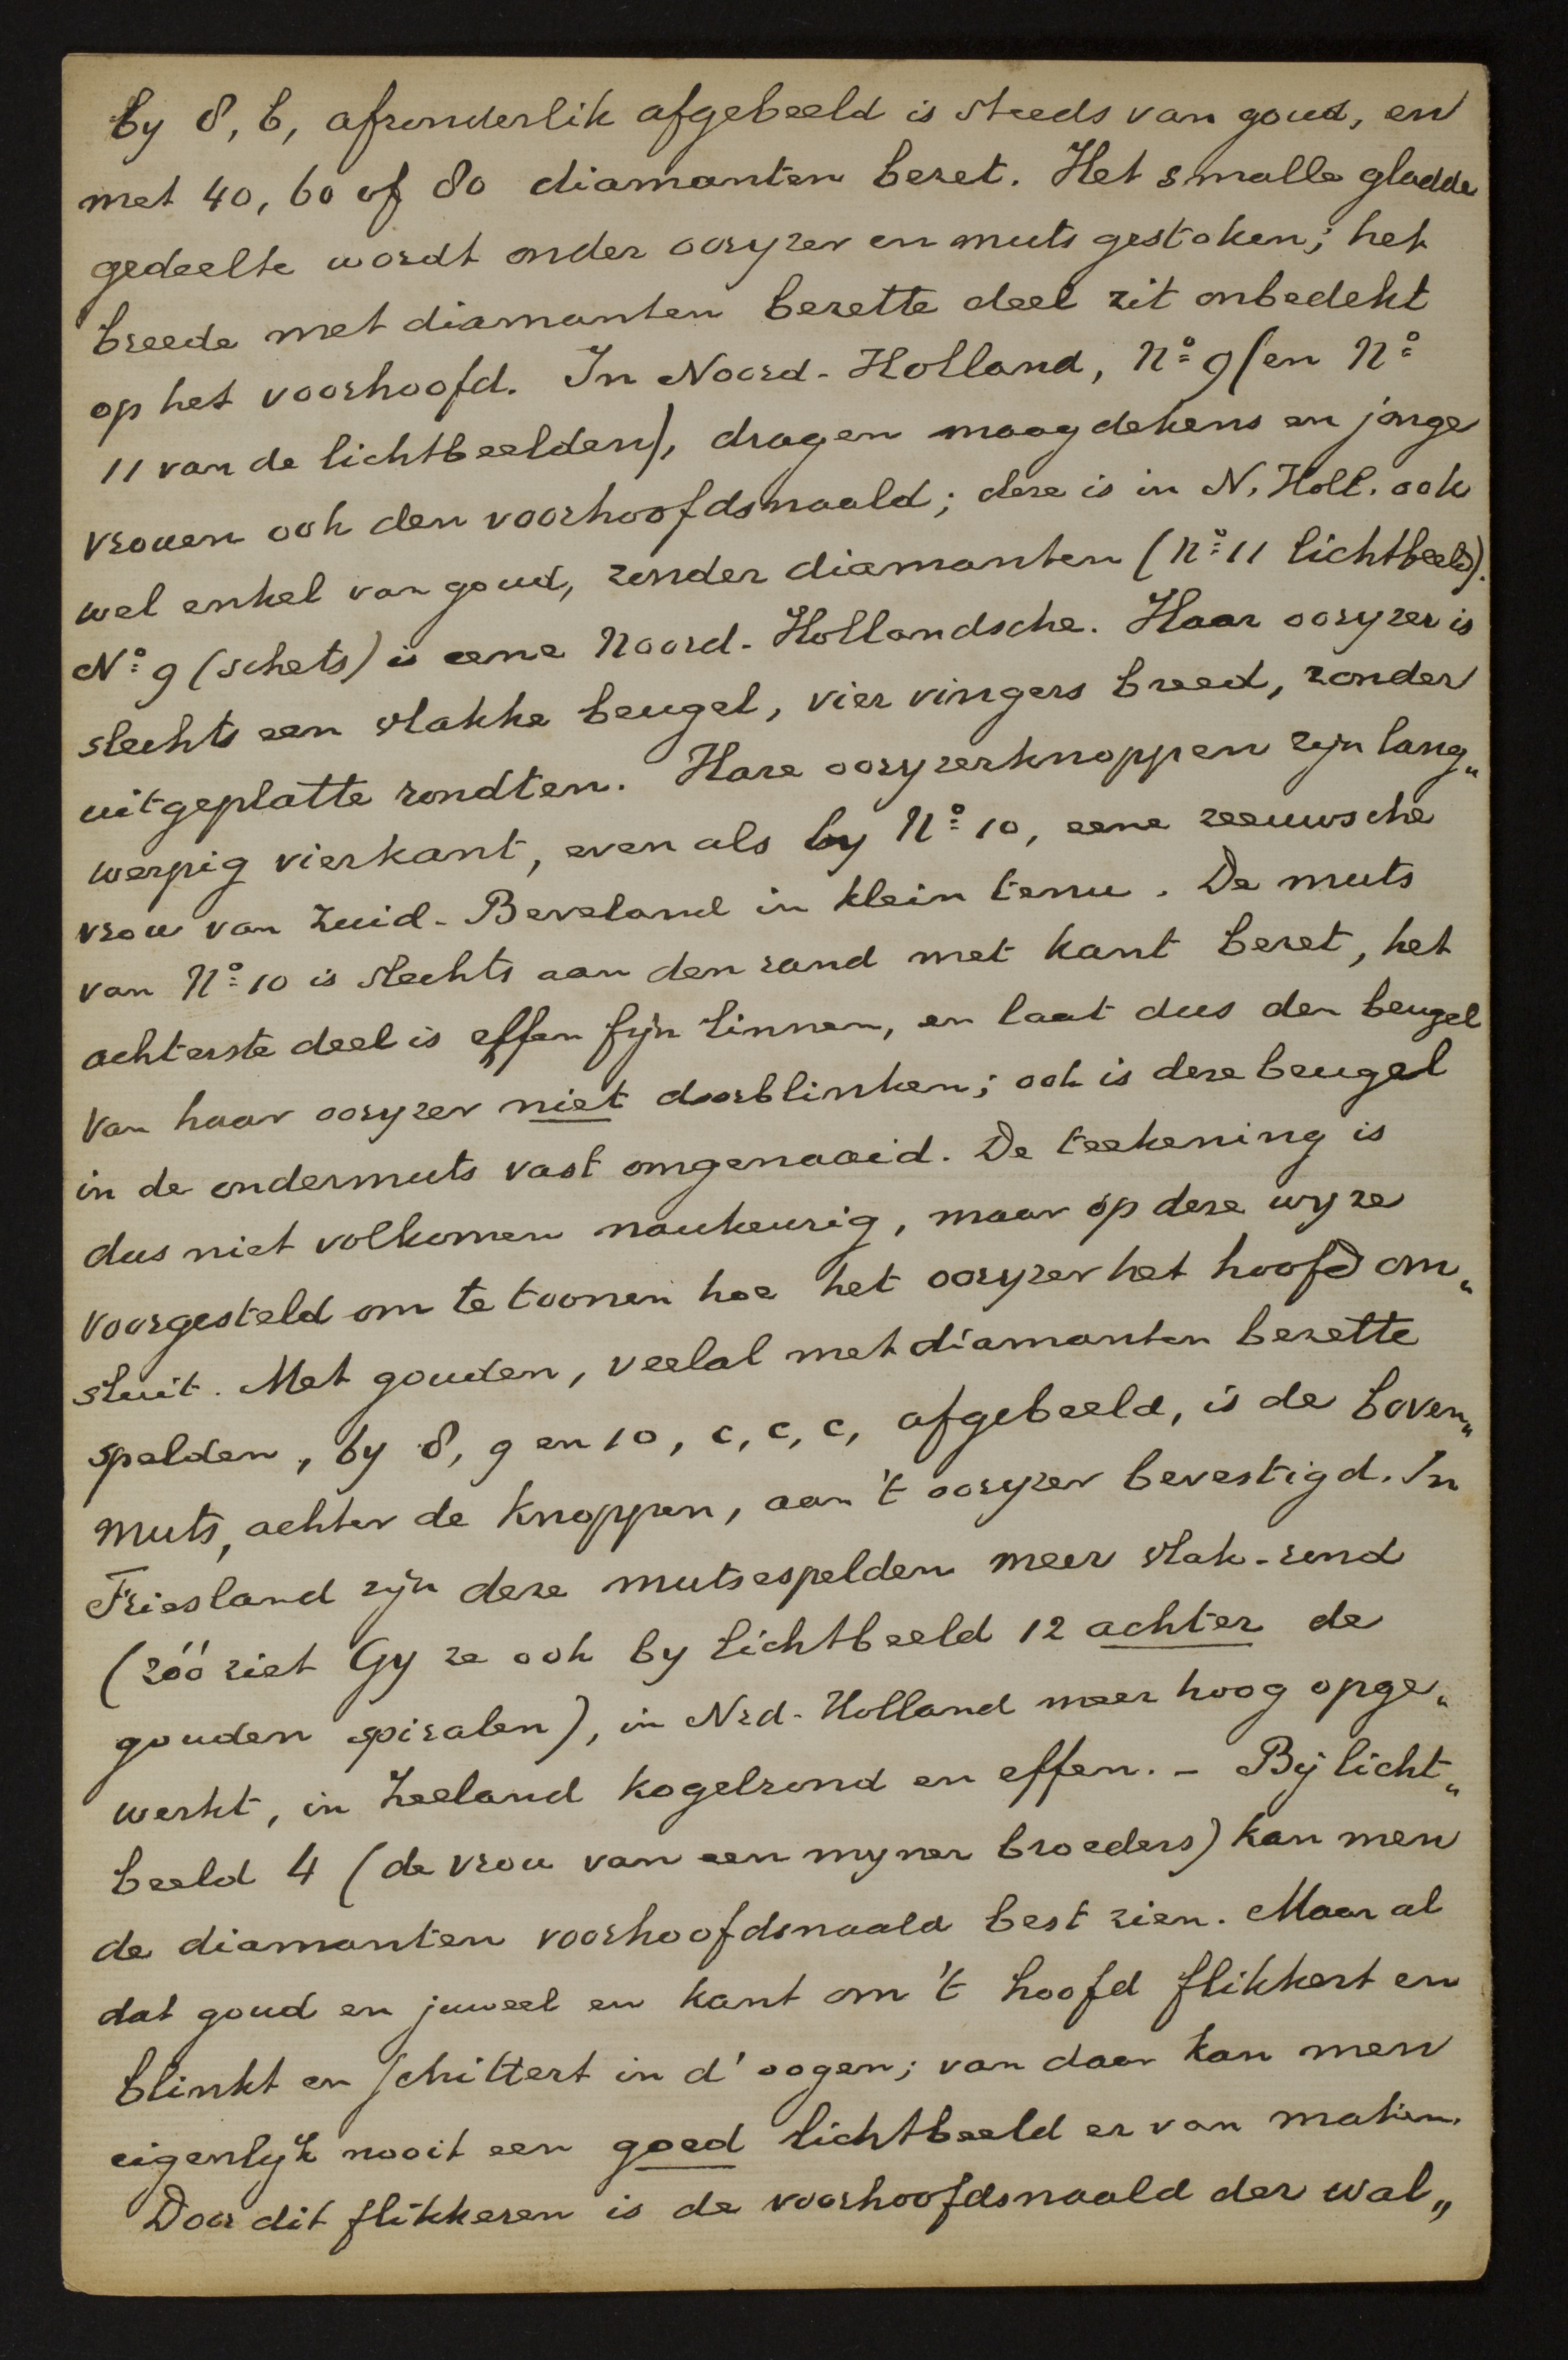 by 8, b, afzonderlik afgebeeld is steeds van goud, en
met 40, 60 of 80 diamanten bezet. Het smalle gladde
gedeelte wordt onder ooryzer en muts gestoken; het
breede met diamanten bezette deel zit onbedekt
op het voorhoofd. In Noord-Holland, No 9 (en No
11 van de lichtbeelden), dragen maagdekens en jonge
vrouen ook den voorhoofdsnaald; deze is in N. Holl. ook
wel enkel van goud, zonder diamanten (No 11 lichtbeeld).
No 9 (schets) is eene Noord-Hollandsche. Haar ooryzer is
slechts een vlakke beugel, vier vingers breed, zonder
uitgeplatte rondten. Hare ooryzerknoppen zyn lang„
werpig vierkant, even als by No 10, eene zeeuwsche
vrou van Zuid-Beveland in klein tenu. De muts
van No 10 is slechts aan den rand met kant bezet, het
achterste deel is effen fyn linnen, en laat dus den beugel
van haar ooryzer niet doorblinken; ook is deze beugel
in de ondermuts vast omgenaaid. De teekening is
dus niet volkomen naukeurig, maar op deze wyze
voorgesteld om te toonen hoe het ooryzer het hoofd om„
sluit. Met gouden, veelal met diamanten bezette
spelden, by 8, 9 en 10, c, c, c, afgebeeld, is de boven„
muts, achter de knoppen, aan 't ooryzer bevestigd. In
Friesland zyn deze mutsespelden meer vlak-rond
(zóó ziet Gy ze ook by lichtbeeld 12 achter de
gouden spiralen), in Nrd-Holland meer hoog opge„
werkt, in Zeeland kogelrond en effen. - By licht„
beeld 4 (de vrou van een myner broeders) kan men
de diamanten voorhoofdsnaald best zien. Maar al
dat goud en juweel en kant om 't hoofd flikkert en
blinkt en schittert in d' oogen; van daar kan men
eigenlyk nooit een goed lichtbeeld er van maken.
Door dit flikkeren is de voorhoofdsnaald der wal„